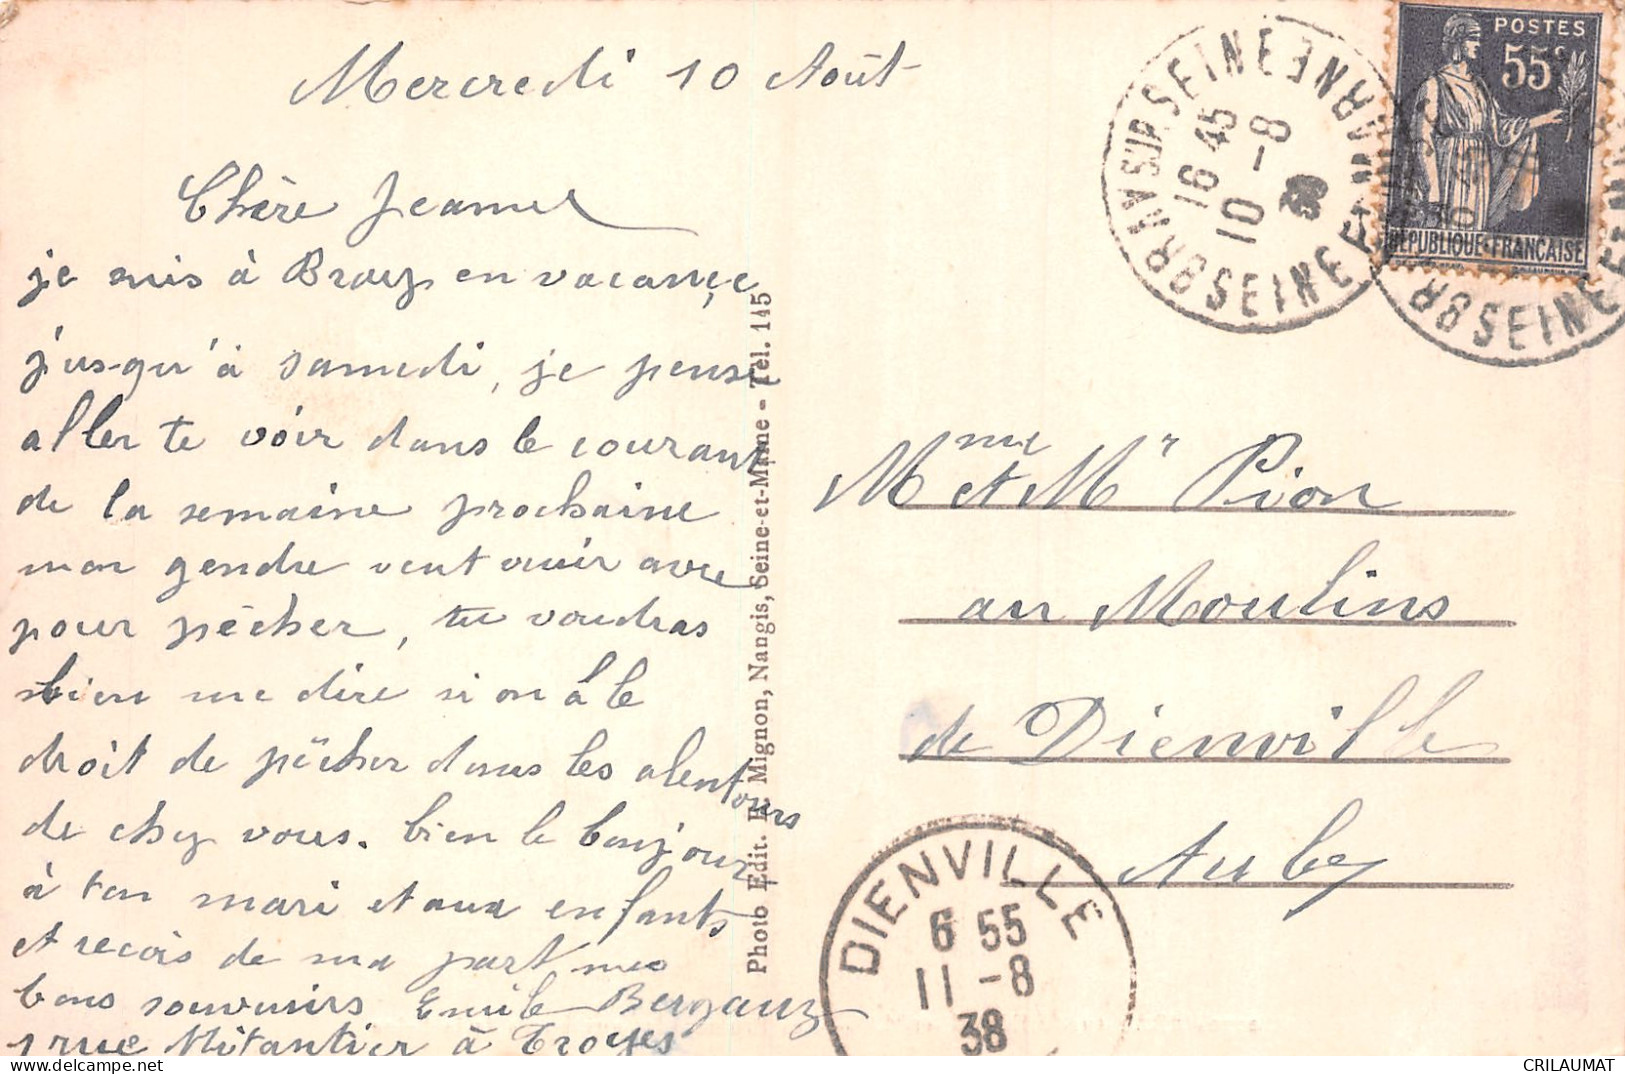 Mercredi 10 Août
Chère Jeanne
je suis à Bray en vacance
jusqu'à samedi, je pense
aller te voir dans le courant
de la semaine prochaine
mon gendre veut venir avec
pour pêcher, tu voudras
bien me dire si on à le
droit de pêcher dans les alentours
de chez vous. bien le bonjour
à ton mari et aux enfants
et reçois de ma part mes
bons souvenirs Emile
rue Mitantier à Troyes
Photo Edit. Mignon, Nangis, Seine-et-Marne - Tél. 145
BRAY SUR SEINE
16 45
10 -8
38
SEINE ET MARNE
POSTES
55c
REPUBLIQUE FRANCAISE
Mme et Mr Pion
au Moulins
de Dienville
Aube
DIENVILLE
6 55
11 -8
38
CRILAUMAT